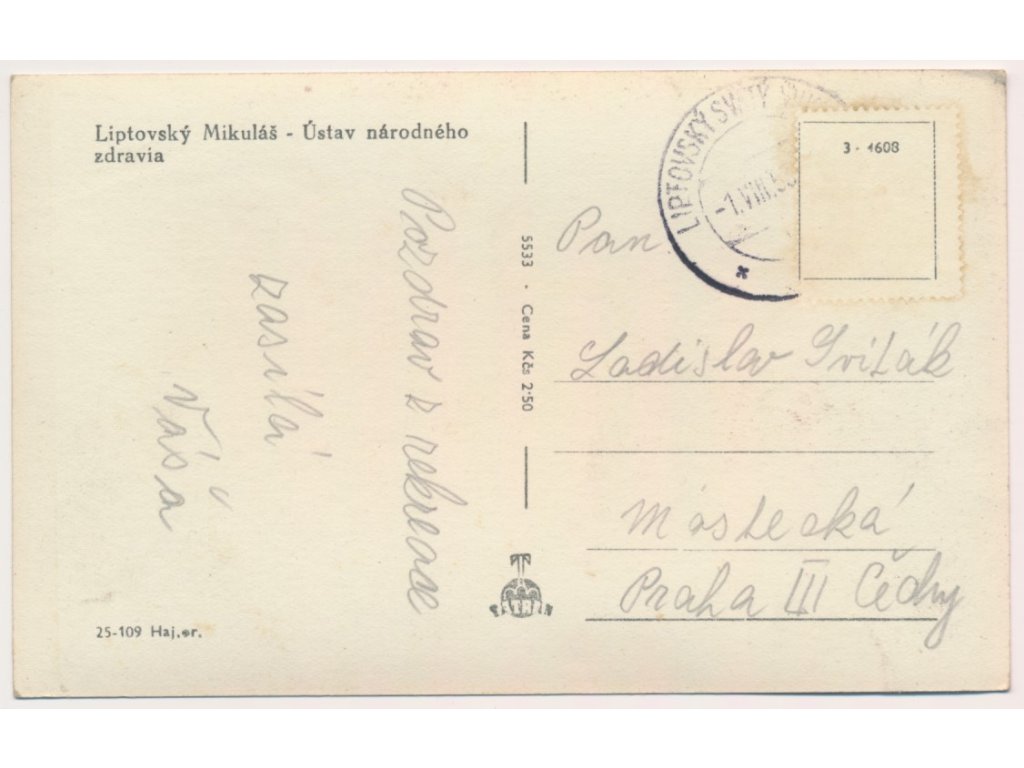 Liptovský Mikuláš - Ústav národného
zdravia
Pozdrav z rekreace
zasílá
Váša
25-109 Haj.or.
5533 · Cena Kčs 2·50
TATRAN
LIPTOVSKÝ SVÄTÝ
-1.VIII.
3 - 1608
Pan
Ladislav Sviták
Mostecká
Praha III Čechy